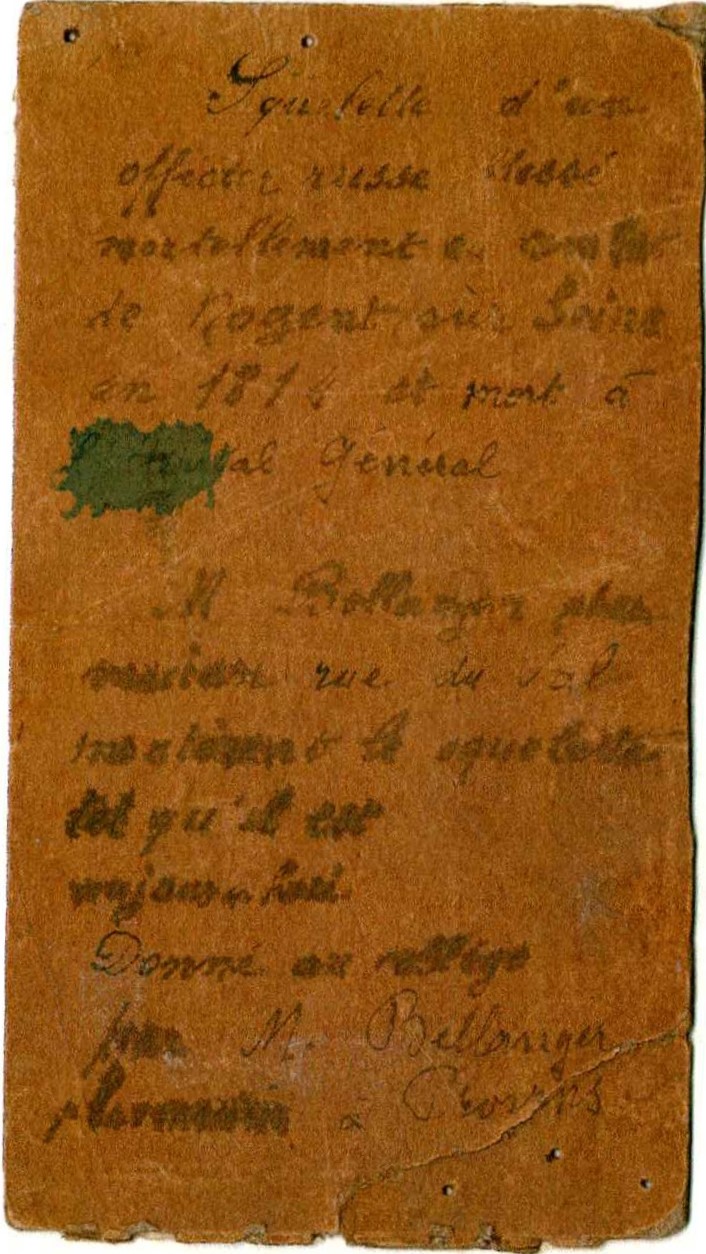 Squelette d'un
officier russe blessé
mortellement au combat
de Nogent sur Seine
en 1814 et mort à
l'Hopital Général
M Bellanger phar
macien rue du Val
montèrent le squelette
tel qu'il est
aujourd'hui.
Donné au collège
par M. Bellanger
pharmacien à Provins